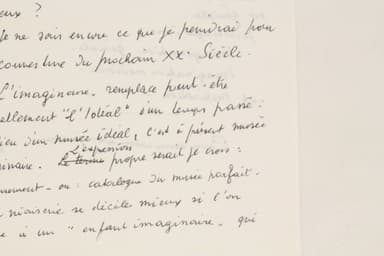 eux ?
Je ne sais encore ce que je peindrai pour
couverture du prochain XXe Siècle.
L'imaginaire remplace peut-être
ellement "l'Idéal" d'un temps passé :
lieu d'un musée idéal, c'est à présent musée
inaire. L'expression
Le terme propre serait je crois :
nement - ou : catalogue du musée parfait.
niaiserie se décèle mieux si l'on
e à un "enfant imaginaire - qui